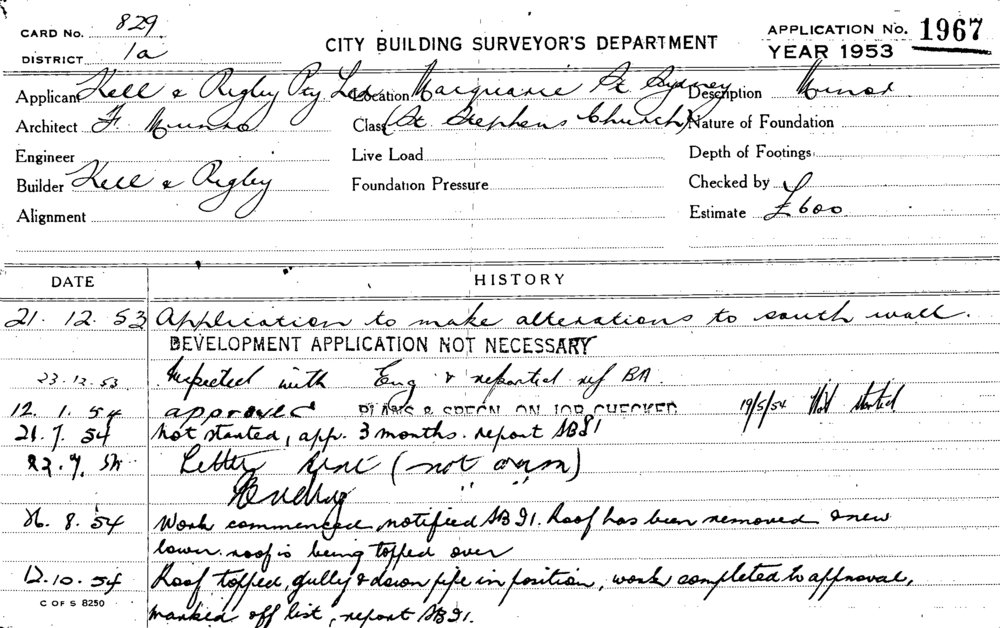 CARD No. 829
DISTRICT 1a
CITY BUILDING SURVEYOR'S DEPARTMENT
APPLICATION No. 1967
YEAR 1953
Applicant Kell & Rigby Pty Ltd Location Macquarie St Sydney Description Minor
Architect F. Munro Class (St Stephens Church) Nature of Foundation
Engineer Live Load Depth of Footings
Builder Kell & Rigby Foundation Pressure Checked by
Alignment Estimate £600
DATE HISTORY
21.12.53 Application to make alterations to south wall.
DEVELOPMENT APPLICATION NOT NECESSARY
23.12.53 Inspected with Eng & reported ref BA
12.1.54 approved PLANS & SPECN. ON JOB CHECKED 19/5/54 Not started
21.7.54 Not started, app. 3 months. report
Letter sent (not
.8.54 Work commenced, notified Roof has been removed & new
lower roof is being topped over
12.10.54 Roof topped, gully & down pipe in position, work completed to approval,
C OF S 8250
marked off list, report